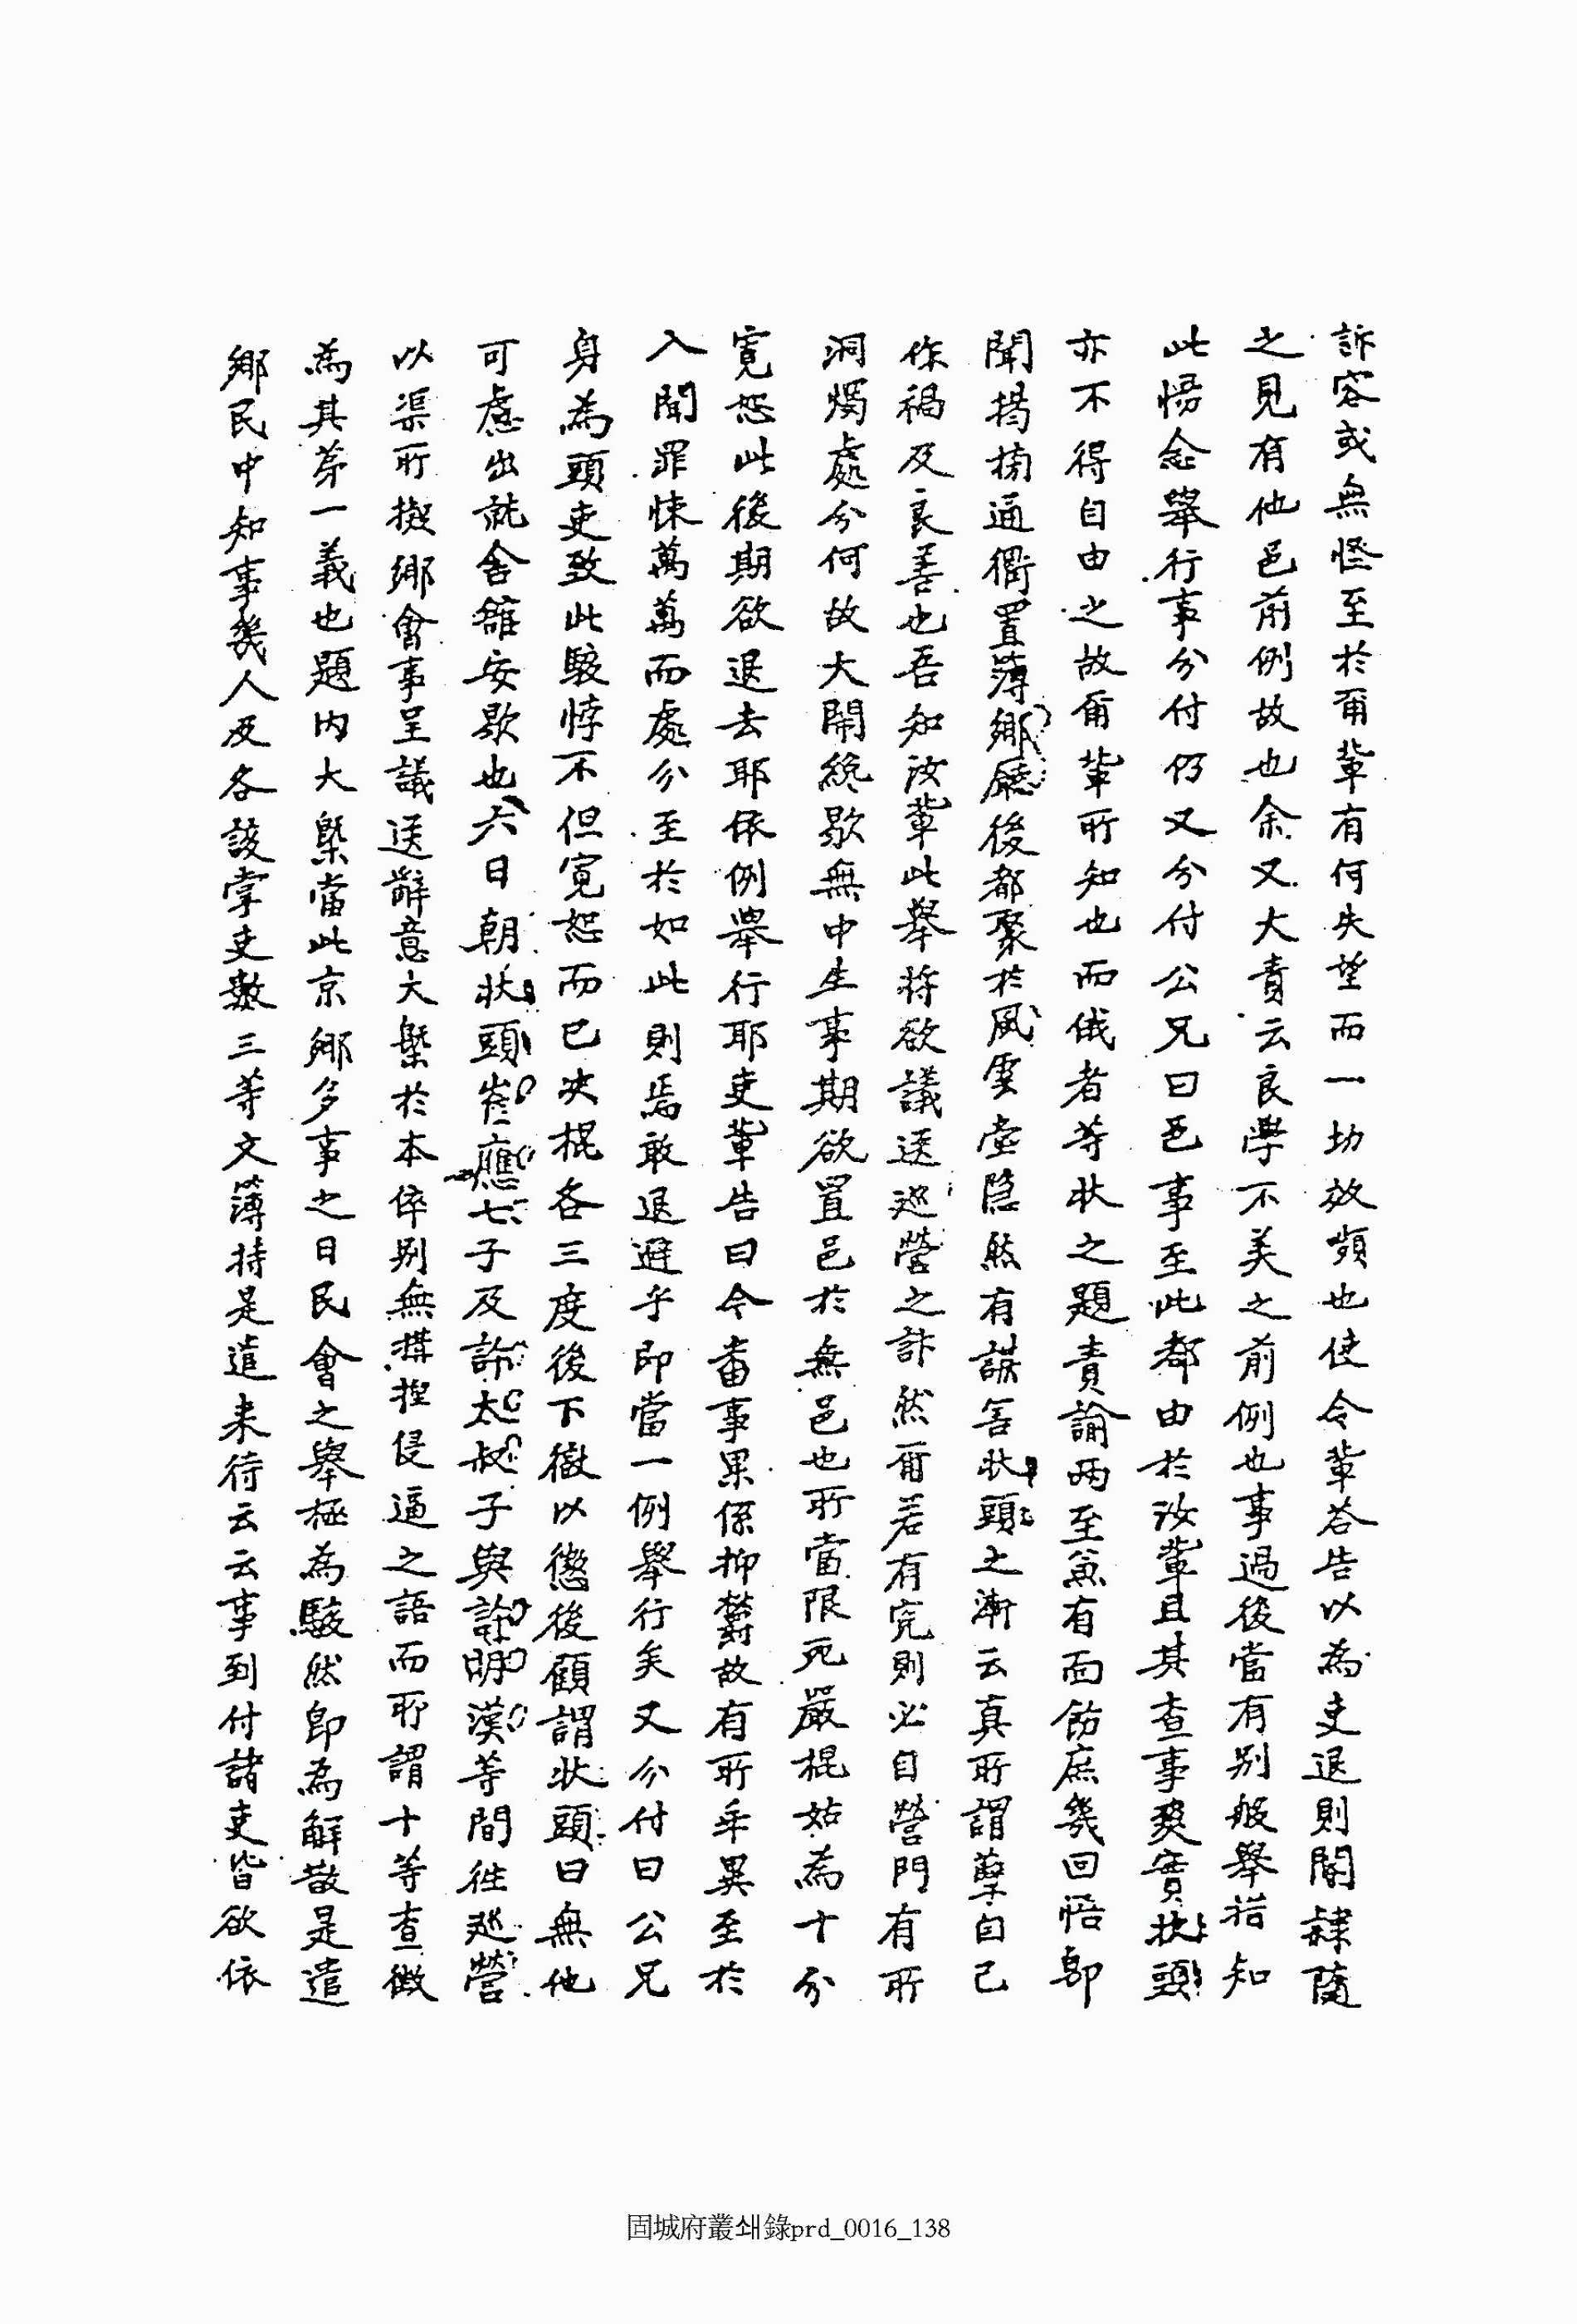 訴容或無怪至於爾輩有何失望而一功效嚬也使令輩答告以為吏退則閽隷隨
之見有他邑前例故也余又大責云良學不美之前例也事過後當有別般擧措知
此惕念擧行事分付仍又分付公兄曰邑事至此都由於汝輩且其査事爽實狀頭
亦不得自由之故爾輩所知也而俄者等狀之題責諭兩至兼有面飭庶幾回悟卽
聞揭榜通衢置薄鄕廳後都聚於風雲堂隐然有誤害狀頭之漸云真所謂孽自己
作禍及良善也吾知汝輩此擧將欲議送巡營之計然爾若有寃則必自營門有所
洞燭處分何故大閙纔歇無中生事期欲置邑於無邑也所當限死嚴棍姑為十分
寛恕此後期欲退去耶依例擧行耶吏輩告曰今番事果係抑欝故有所乖異至於
入聞罪悚萬萬而處分至於如此則焉敢退避乎卽當一例擧行矣又分付曰公兄
身為頭吏致此駭悖不但寛恕而已决棍各三度後下獄以懲後顧謂狀頭曰無他
可慮出就舍舘安歇也六日朝狀頭崔應七子及許太叔子與許明漢等間徃巡營
以渠所擬鄕會事呈議送辭意大槩於本倅別無搆捏侵逼之語而所謂十等查徴
為其第一義也題内大槩當此京鄕多事之日民會之擧極為駭然卽為解散是遣
鄕民中知事幾人及各該掌吏數三等文簿持是遣来待云云事到付諸吏皆欲依
固城府叢쇄錄prd_0016_138